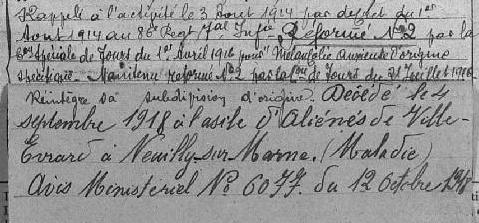 Rappelé à l'activité le 3 Aout 1914 par decret du 1er
Aout 1914 au 86e Regt Tal Infie Réformé No2 par la
Con Spéciale de Tours du 1er Avril 1916 pour Mélancolie Ancienne d'origine
spécifique. Maintenu réformé No2 par la Con de Tours du 21 Juillet 1916
Réintègre sa subdivision d'origine. Décédé le 4
septembre 1918 à l'asile d'Aliénés de Ville-
Evrard à Neuilly-sur-Marne. (Maladie)
Avis Ministeriel No 6077 du 12 Octobre 1918